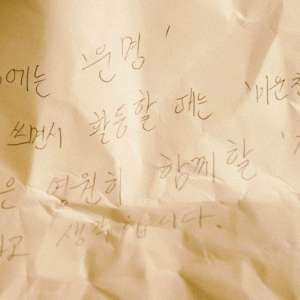 에는 '운명'
쓰면서 활동할 때는
은 영원히 함께할
고 생각합니다.